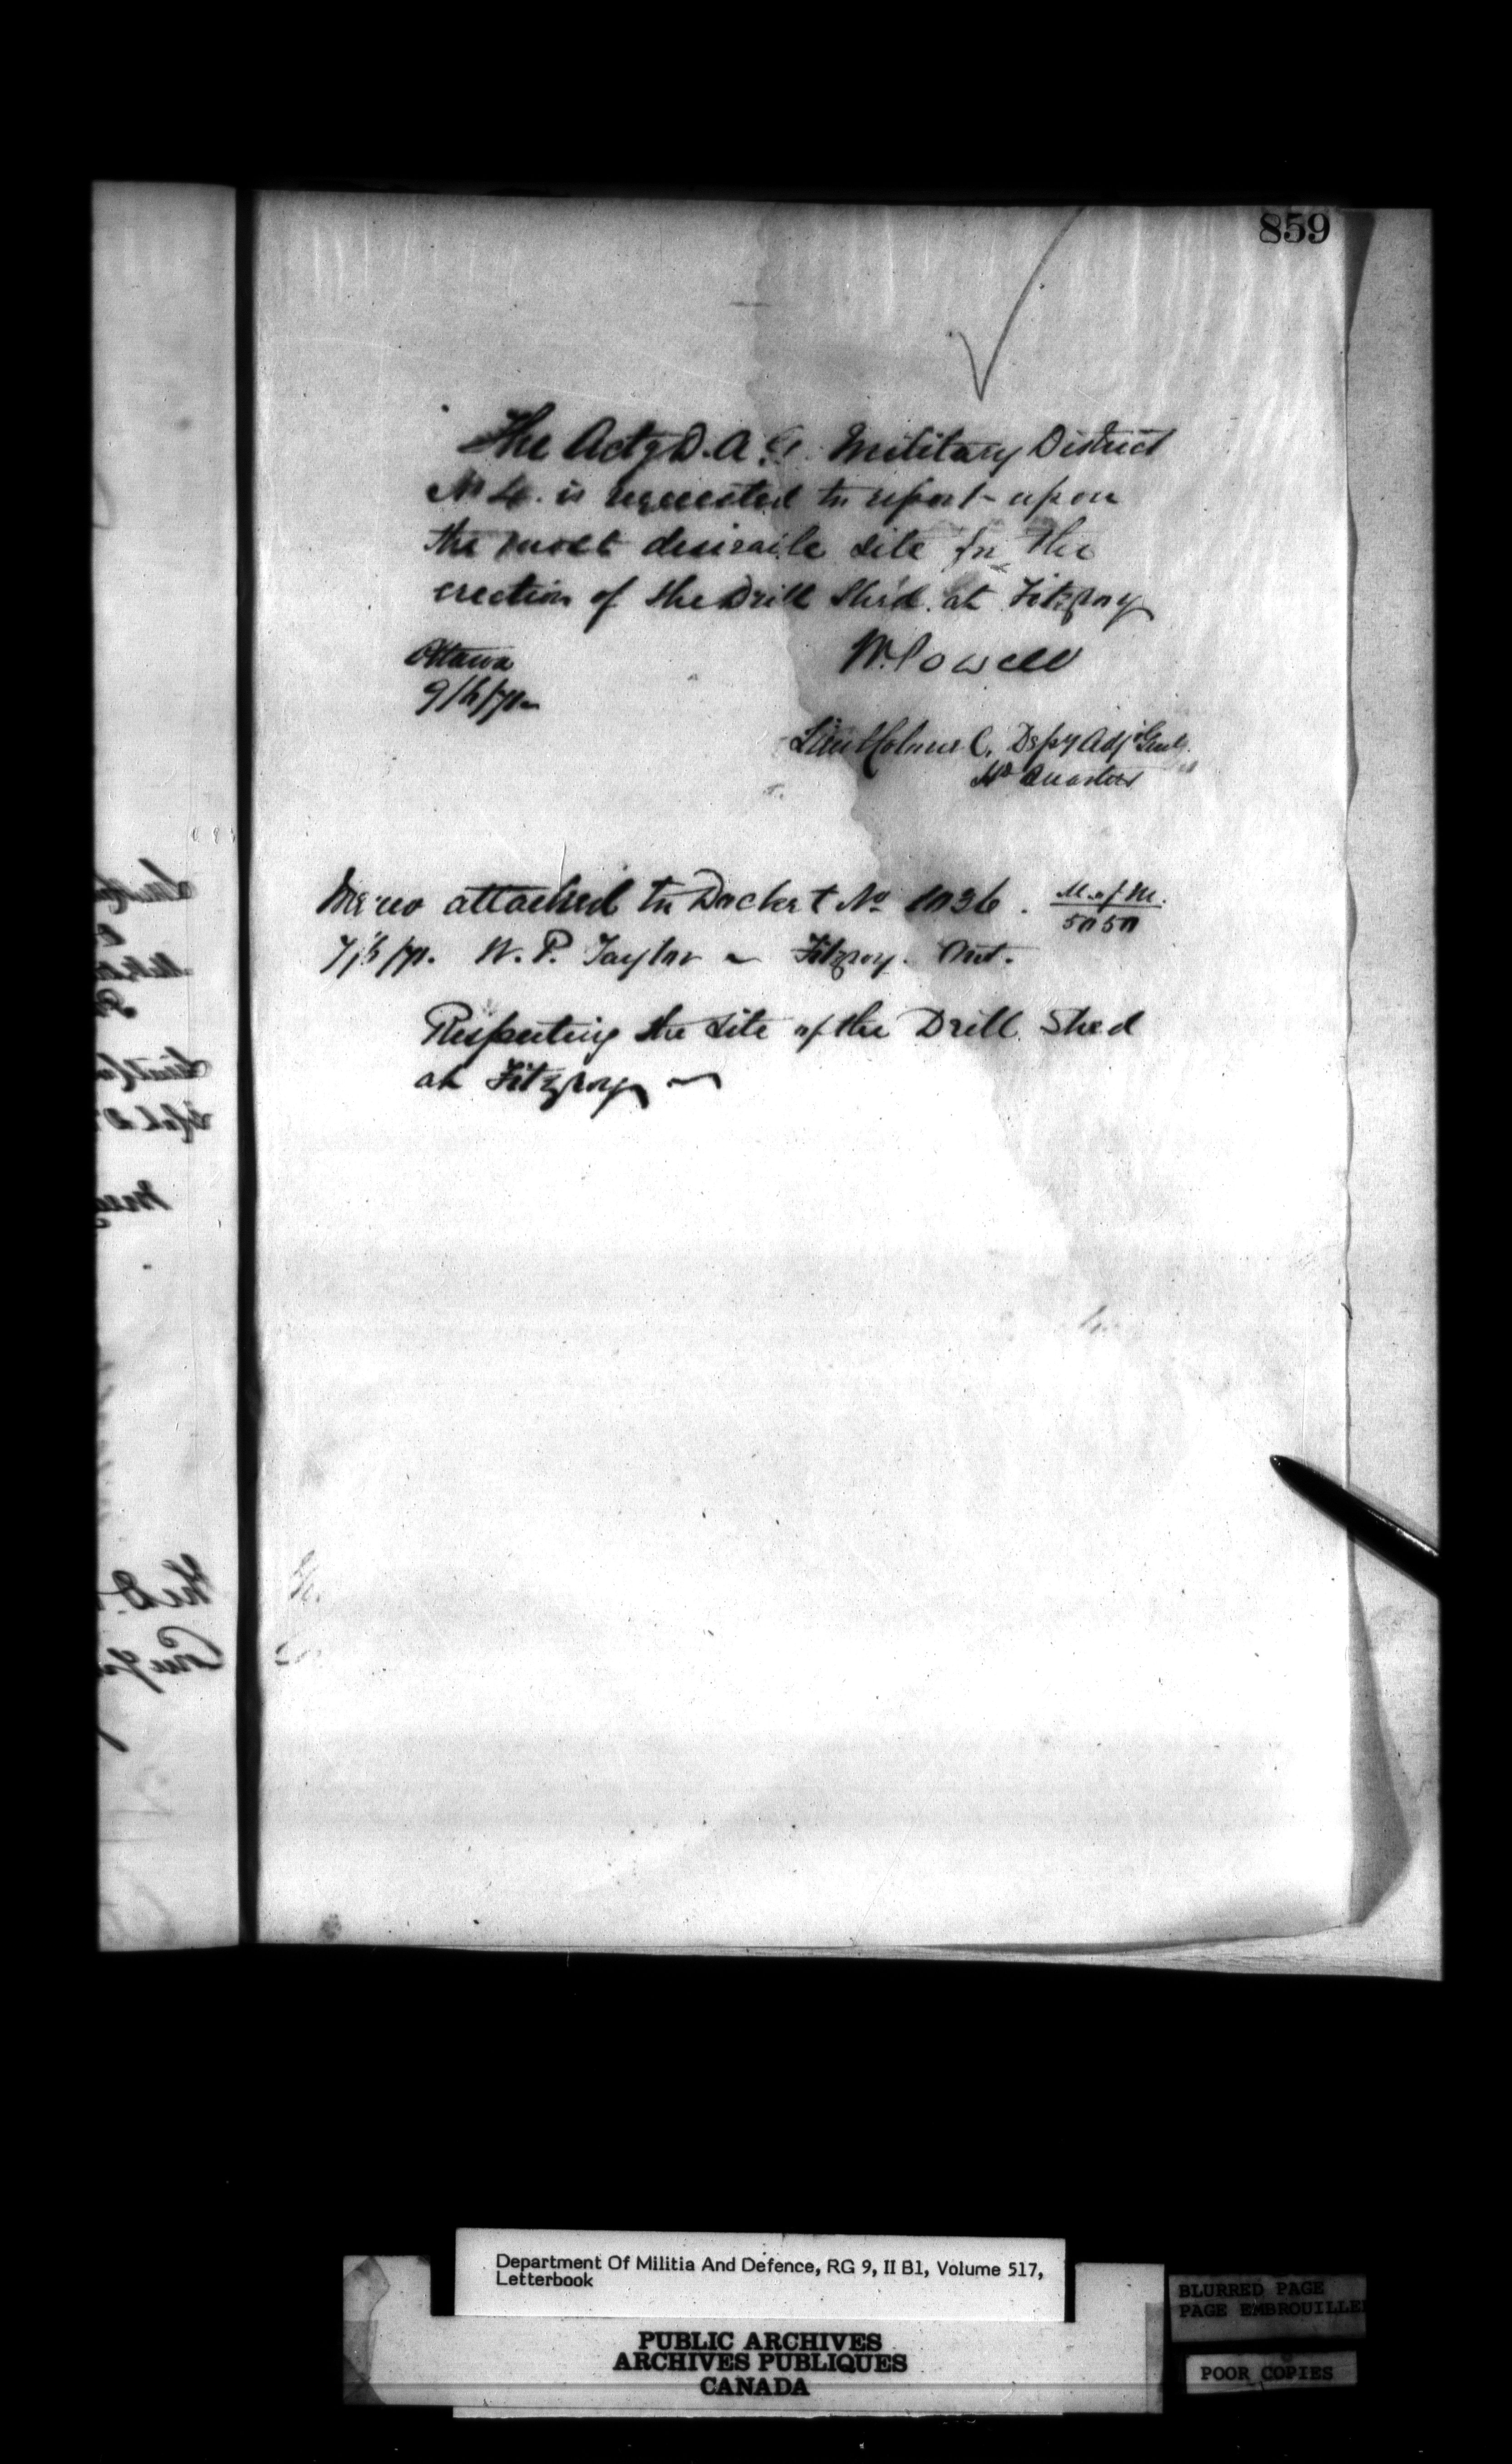 859
The Actg D. A. G. Military District
No 4. is requested to report upon
the most desirable site for the
erection of the Drill Shed at Fitzroy
Ottawa
W. Powell
Lieut Colonel, Depy Adjt Genl.
Hd Quarters
Memo attached to Docket No 1036. M of M.
5050
W. P. Taylor ~ Fitzroy. Ont.
Respecting the site of the Drill Shed
at Fitzroy ~
Department Of Militia And Defence, RG 9, II B1, Volume 517,
Letterbook
PUBLIC ARCHIVES
ARCHIVES PUBLIQUES
CANADA
BLURRED PAGE
PAGE EMBROUILLEE
POOR COPIES